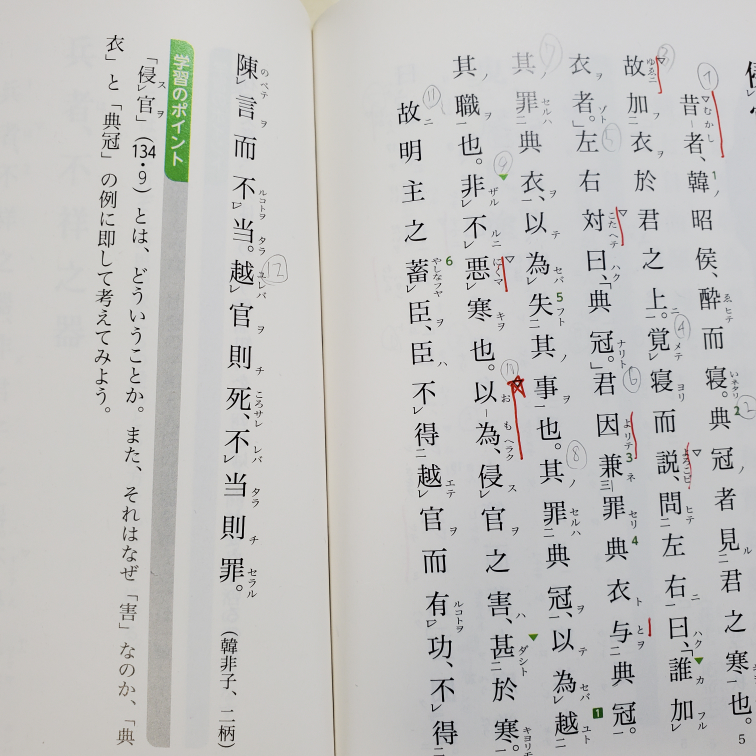 昔者、韓昭侯、酔而寝。典冠者見君之寒也。
故加衣於君之上。覚寝而説、問左右曰、「誰加
衣者。」左右対曰、「典冠。」君因兼罪典衣与典冠。
其罪典衣、以為失其事也。其罪典冠、以為越
其職也。非不悪寒也。以為、侵官之害、甚於寒。
故明主之蓄臣、臣不得越官而有功、不得
陳言而不当。越官則死、不当則罪。
(韓非子、二柄)
学習のポイント
「侵官」(134・9)とは、どういうことか。また、それはなぜ「害」なのか、「典
衣」と「典冠」の例に即して考えてみよう。